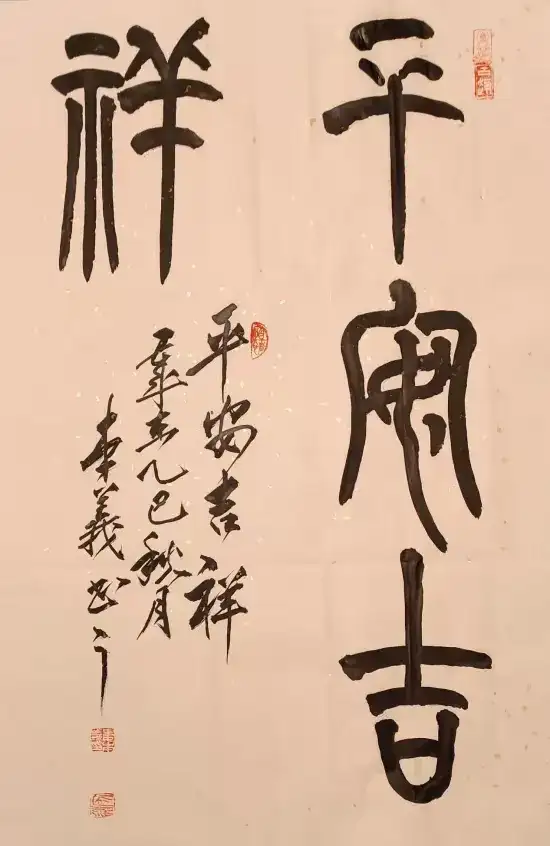 平安吉
祥
平安吉祥
乙巳秋月
東義书